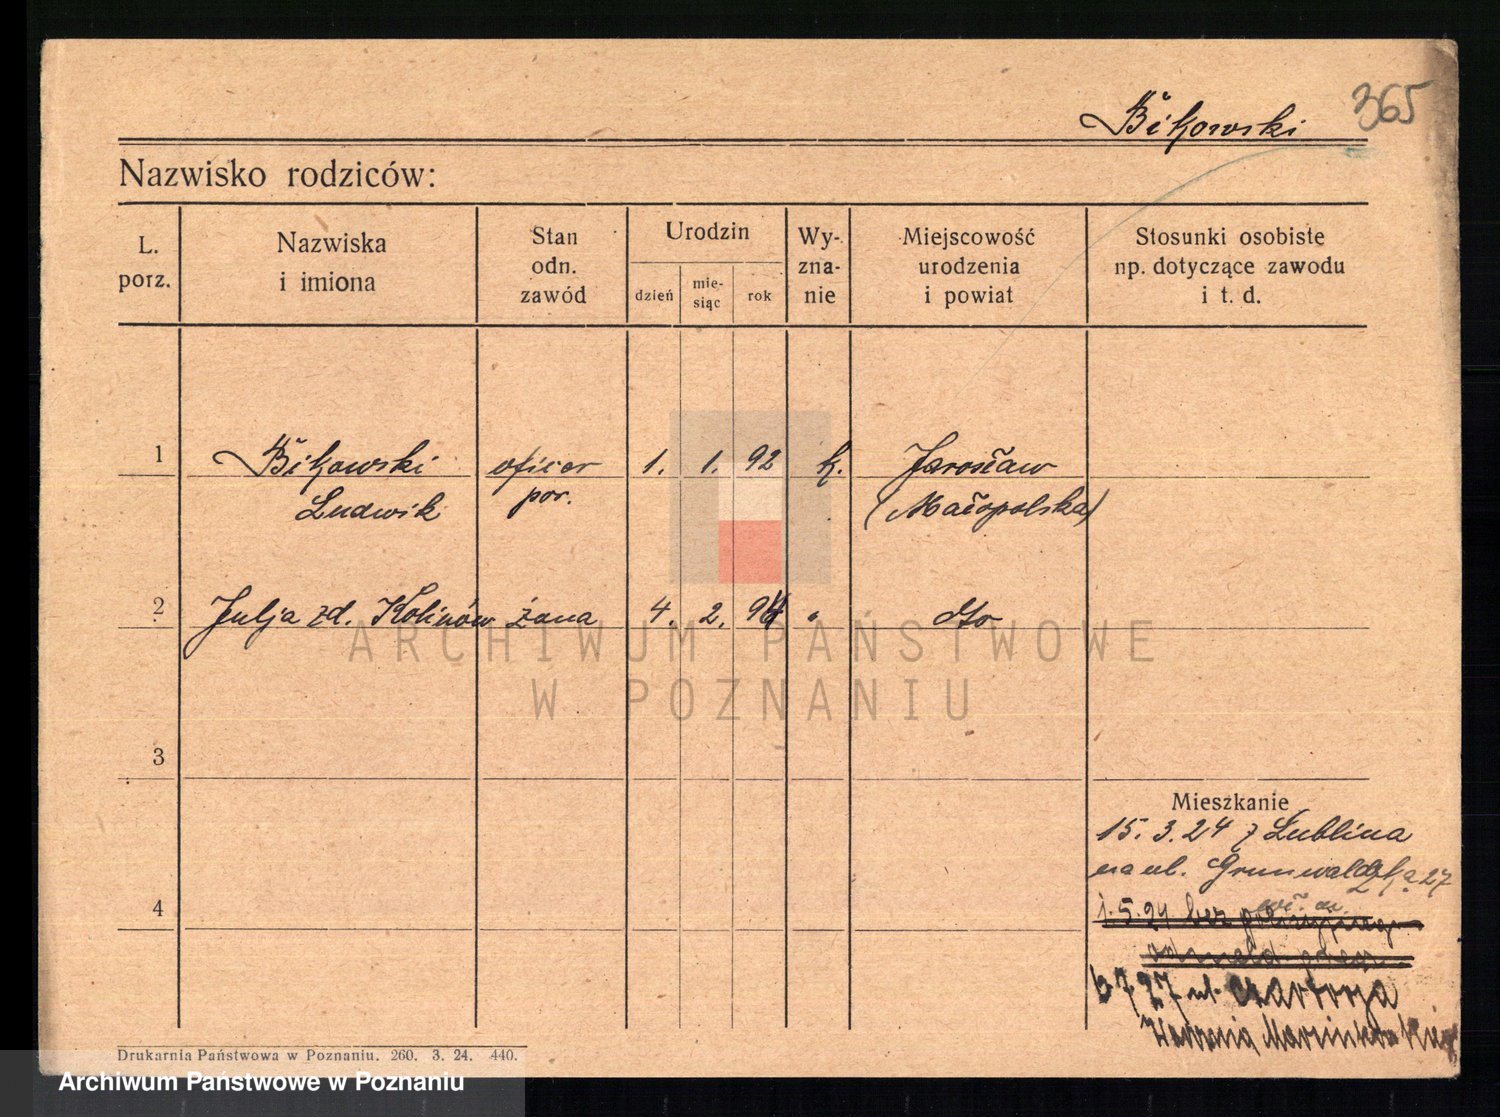 365
Bikowski
Nazwisko rodziców:
L. porz.
Nazwiska i imiona
Stan odn. zawód
Urodzin
dzień
mie-
siąc
rok
Wy-
zna-
nie
Miejscowość
urodzenia
i powiat
Stosunki osobiste
np. dotyczące zawodu
i t. d.
1 Bikowski oficer 1. 1. 92 k. Jarosław
Ludwik por. (Małopolska)
2 Julja zd. Kolinów żona 4. 2. 94 " dto
ARCHIWUM PAŃSTWOWE
W POZNANIU
3
Mieszkanie
15. 3. 24 z Lublina
na ul. Grunwaldzka 27
4
1.5.24 bez
727 ul.
Marcinkowskiego
Drukarnia Państwowa w Poznaniu. 260. 3. 24. 440.
Archiwum Państwowe w Poznaniu